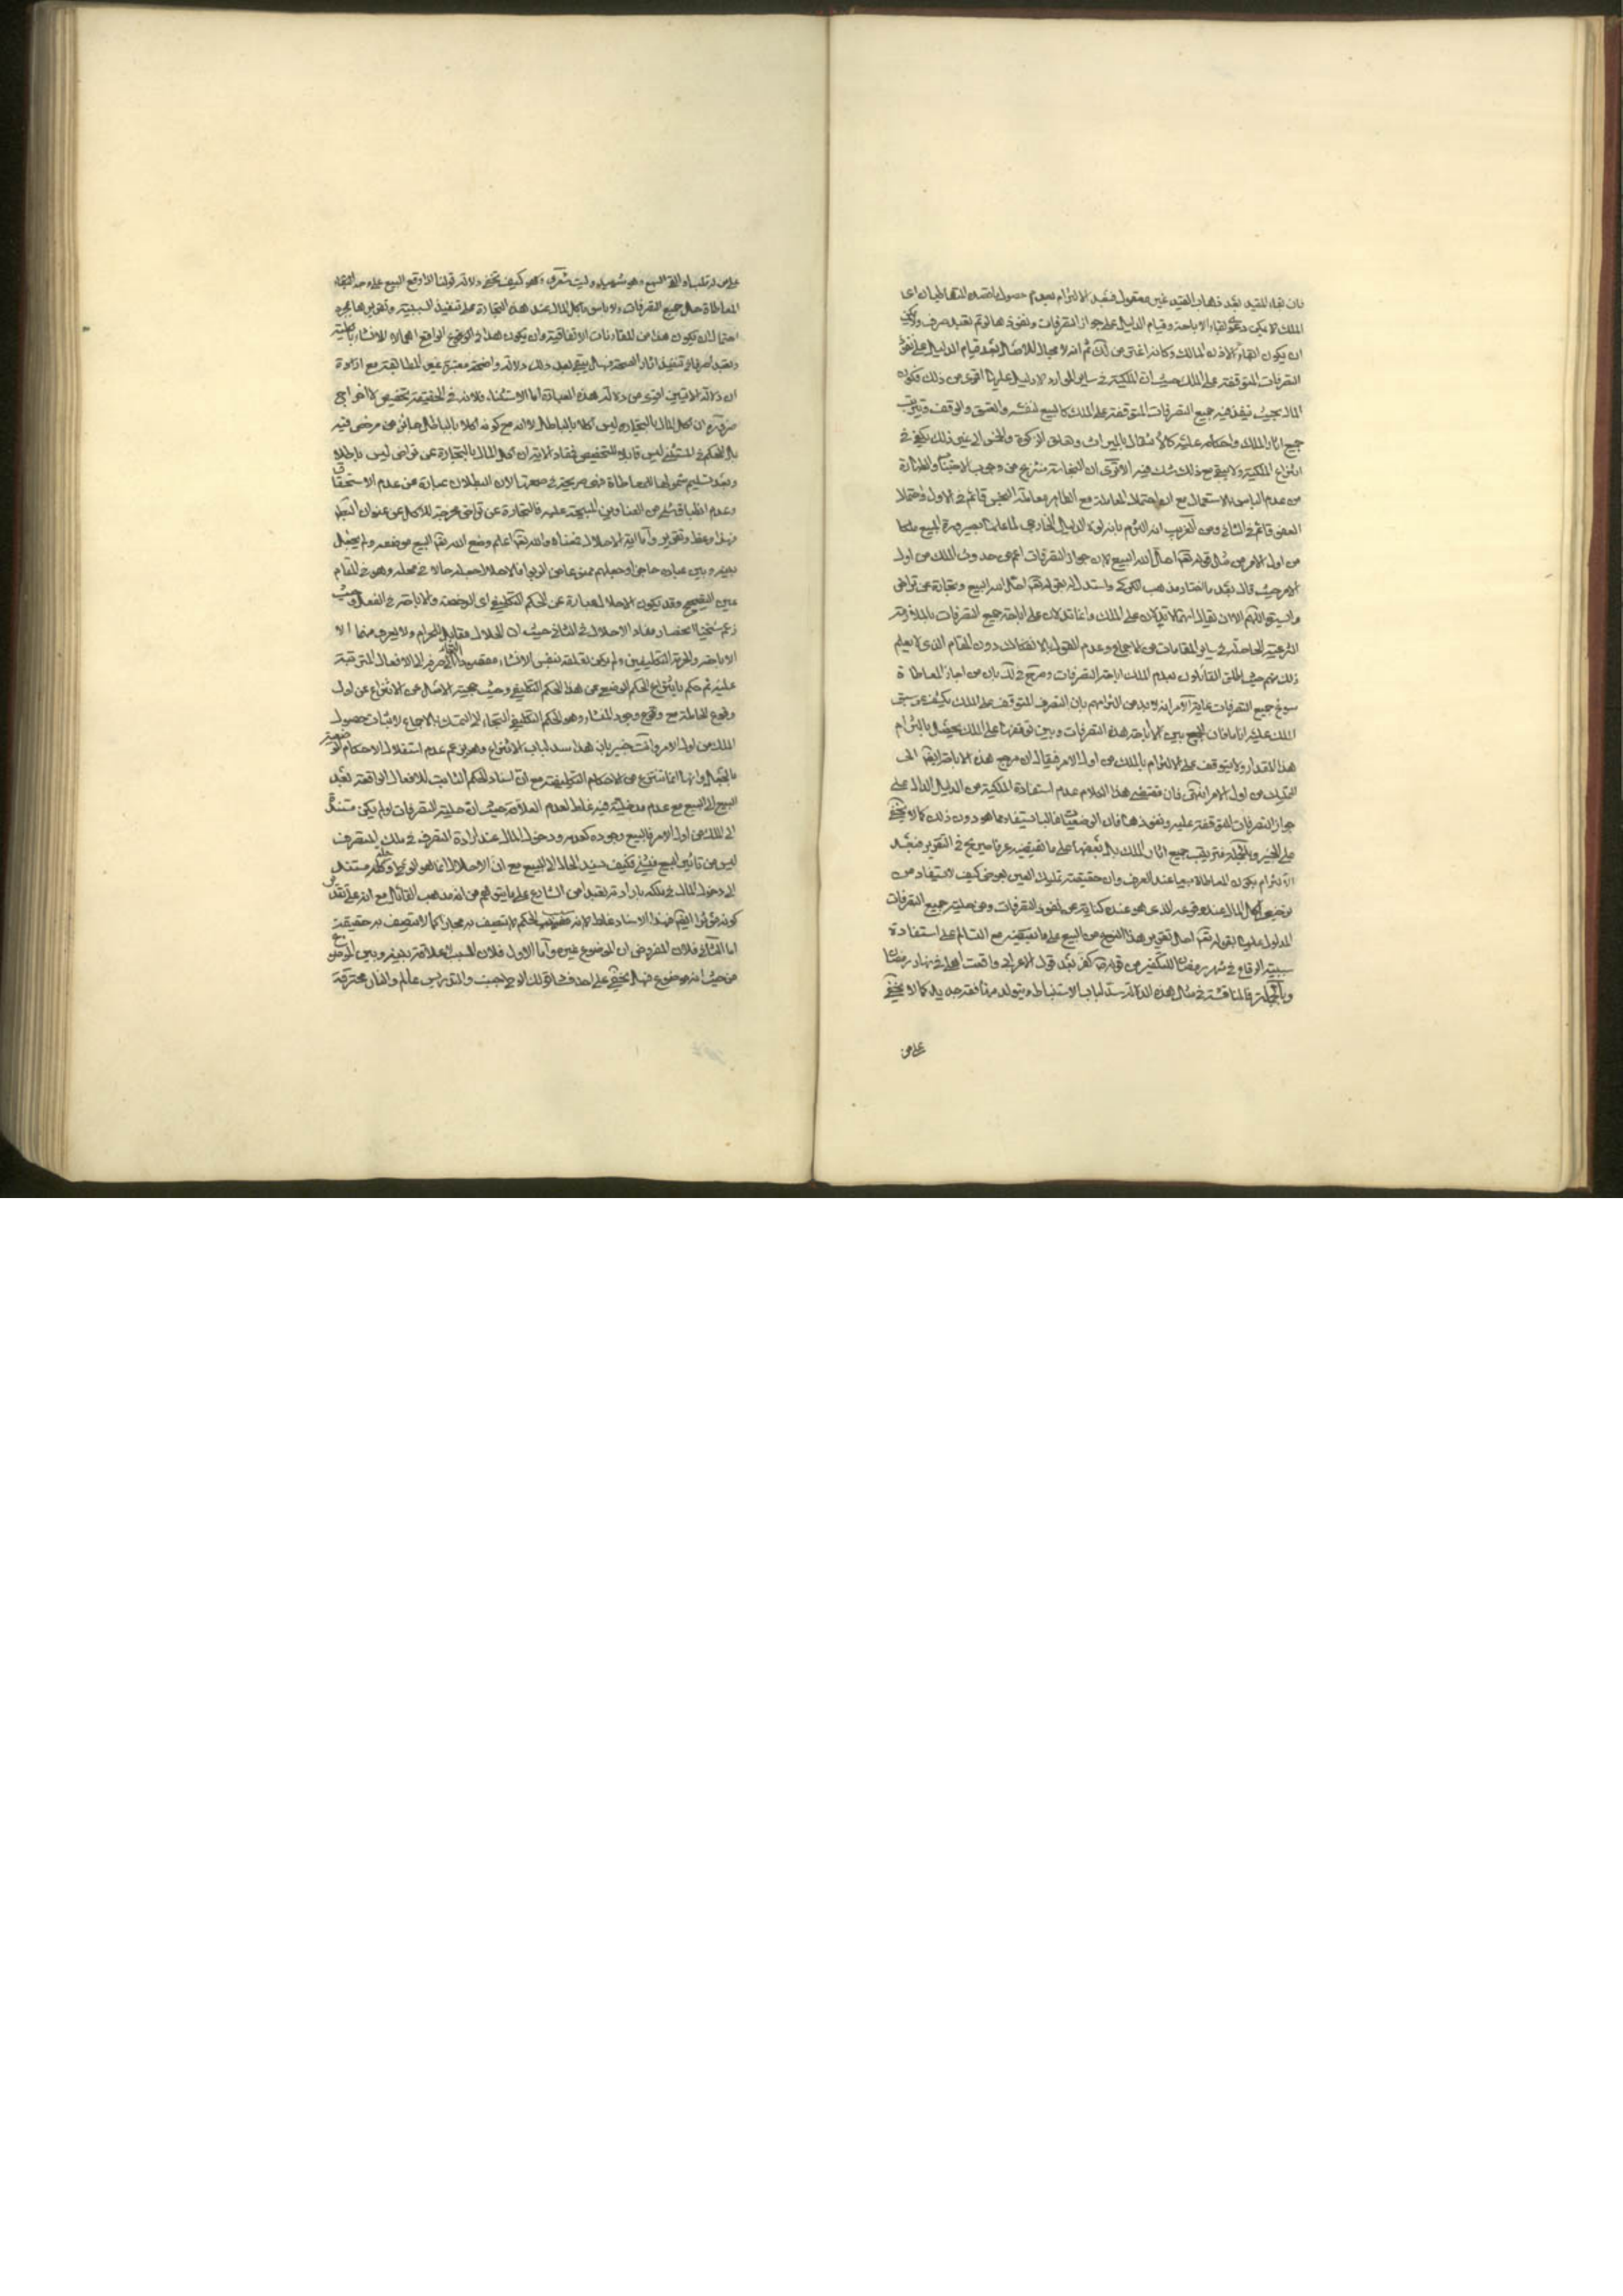 فان بقاء المقيد بعد ذهاب القيد غير معقول فبعد الالتزام بعدم حصول ما قصده المتعاطيان اى
الملك لا يمكن دعوى بقاء الاباحة وقيام الدليل على جواز التصرفات ونفوذها لو تم تعبد صرف
ان يكون ابقاء الاذن المالك وكانه اغتر من ثم انه لا مجال للاصل بعد قيام الدليل على
التصرفات المتوقفة على الملك حيث ان الملكية فى ساير الموارد لا دليل عليها اقوى من ذلك فكون
المال بحيث ينفذ فيه جميع التصرفات المتوقفة على الملك كالبيع لنفسه والعتق والوقف
جميع اثار الملك واحكامه عليه كالانتقال بالميراث وتعلق الزكوة والخمس الى غير ذلك يكفى فى
انتزاع الملكية ولا يبقى مع ذلك شك فيه الا ترى ان النجاسة منتزع من وجوب الاجتناب والطهارة
من عدم الباس بالاستعمال مع ان احتمال المعاملة مع الطاهر معاملة النجس قائم فى الاول واحتمال
العفو قائم فى الثانى ومن الغريب انه التزم بانه لولا الدليل الخارجى لما علمنا بصيرورة المبيع ملكا
من اول الامر من مثل قوله تعالى احل الله البيع لان جواز التصرفات اعم من حدوث الملك من اول
الامر حيث قال بعد ما اختار مذهب الكركى واستدل له بقوله تعالى احل الله البيع وتجارة عن تراض
والسيرة اللهم الا ان يقال انهما لا تدلان على الملك وانما تدلان على اباحة جميع التصرفات
الشرعية الحاصلة فى ساير المقامات من الاجماع وعدم القول بالانفكاك دون المقام الذى لا يعلم
ذلك منهم حيث اطلق القائلون بعدم الملك اباحة التصرفات وصرح فى لك بان من اجاز المعاطاة
سوغ جميع التصرفات غاية الامر انه لا بد من التزامهم بان التصرف المتوقف على الملك يكشف عن سبق
الملك عليه انا ما فان الجمع بين اباحة هذه التصرفات وبين توقفها على الملك يحصل بالتزام
هذا المقدار ولا يتوقف على الالتزام بالملك من اول الامر فيقال ان مرجع هذه الاباحة ايضا الى
التمليك من اول الامر انتهى فان مقتضى هذا الكلام عدم استفادة الملكية من الدليل الدال على
جواز التصرفات المتوقفة عليه ونفوذها فان الوضعيات غالبا يستفاد مما هو دون ذلك كما لا يخفى
على الخبير وبالجملة فترتب جميع اثار الملك بل بعضها على ما يقتضيه عرفا صريح فى التقرير فبعد
الالتزام بكون المعاطاة بيعا عند العرف وان حقيقته تمليك العين بعوض كيف لا يستفاد من
اكل المال عند وقوعه الذى هو عنده كناية عن نفوذ التصرفات ومن حلية جميع التصرفات
المدلول عليها بقوله تعالى احل تقرير هذا النوع من البيع على ما يقتضيه مع التسالم على استفادة
سببية الوقاع فى شهر رمضان للتكفير من قوله كفر بعد قول الاعرابى واقعت اهلى فى نهار رمضان
وبالجملة فالمناقشة فى مثل هذه الدلالة سد لباب الاستنباط جديد كما لا يخفى
على من
على من له قلب او القى السمع وهو شهيد وليت شعرى وهو كيف تخفى دلالة قولنا اذا وقع البيع على وجه
المعاطاة حل جميع التصرفات ولا باس باكل المال عند هذه التجارة على تنفيذ السببية وتقريرها بمجرد
احتمال ان يكون هذا من المقارنات الاتفاقية وان يكون هذا فى الواقع اهمالا للانشاء بالمرة
وتعبد اخر فى تنفيذ اثار الصحة فهل يبقى بعد ذلك دلالة واضحة معتبرة غير المطابقة مع
ان دلالة الايتين اقوى من دلالة هذه العبارة اما الاستثناء فلانه فى الحقيقة تخصيص لا اخراج
ضرورة ان اكل المال بالتجارة ليس اكلا بالباطل لا انه مع كونه اكلا بالباطل جائز مرخص فيه
بل الحكم فى المستثنى ليس قابلا للتخصيص فمفاد الاية ان اكل المال بالتجارة عن تراض ليس باطلا
وبعد تسليم شمولها للمعاطاة فهى صريحة فى صحتها لان البطلان عبارة عن عدم الاستحقاق
وعدم انطباق شئ من العناوين المبيحة عليه فالتجارة عن تراض مخرجة للاكل عن عنوان
فهذا وعظ وتقرير واما اية الاحلال فمعناه والله تعالى اعلم وضع الله تعالى البيع موضعه ولم يجعل
بينه وبين عباده حاجزا وجعلهم ممنوعا عن الربوا فالاحلال جعله حالا فى محله وهو فى المقام
عين التصحيح وقد يكون الاحلال عبارة عن الحكم التكليفى اى الرخصة والاباحة فى الفعل وحيث
زعم شيخنا انحصار مفاد الاحلال فى الثانى حيث ان الحلال مقابل للحرام ولا يعرف منهما الا
الاباحة والحرمة التكليفيتين ولم يمكن تعلقه بنفس الانشاء صرفه الى الافعال المترتبة
عليه ثم حكم بانتزاع الحكم الوضعى من هذا الحكم التكليفى وحيث الانتزاع عن اول
وقوع المعاملة مع وقوع وجود المنشاء وهو الحكم التكليفى التجاء الى التمسك بالاجماع لاثبات حصول
الملك من اول الامر وانت خبير بان هذا سد لباب الانتزاع وهو يزعم عدم استقلال الاحكام الوضعية
بالجعل وانها انما تنتزع من الاحكام التكليفية مع ان اسناد الحكم الثابت للافعال الواقعة بعد
البيع الى البيع مع عدم مدخليته فيه غلط لعدم العلاقة حيث ان حلية التصرفات لو لم يكن مستندا
الى الملك من اول الامر فالبيع وجوده كعدمه ودخول المال عند ارادة التصرف فى ملك المتصرف
ليس من تاثير البيع فى شئ فكيف يسند الحل الى البيع مع ان الاحلال
الى دخول المال فى ملكه بارادته تعبدا من الشارع على ما يتوهم من انه مذهب القائل مع انه على تقدير
كونه مؤثرا ايضا فهذا الاسناد غلط لان الحكم لا يتصف به مجازا كما لا يتصف به حقيقة
اما الثانى فلان المفروض ان الموضوع غيره واما الاول فلان السبب لا علاقة بينه وبين الموضوع
من حيث انه موضوع فهل يخفى على احد عالم والفار محترقة